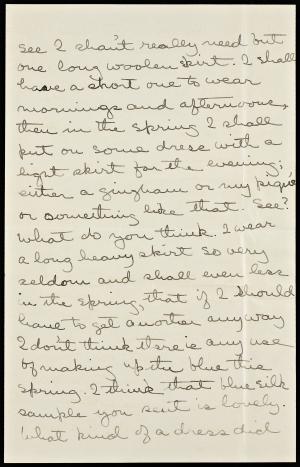 see I shan't really need but
one long woolen skirt. I shall
have a short one to wear
mornings and afternoons,
then in the spring I shall
put on some dress with a
light skirt for the evening;
either a gingham or my piqué
or something like that. See?
What do you think. I wear
a long heavy skirt so very
seldom and shall even less
in the spring, that if I should
have to get another anyway
I don't think there is any use
of making up the blue this
spring. I think that blue silk
sample you sent is lovely.
What kind of a dress did